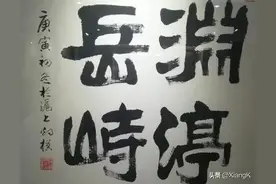 渊渟
岳峙
庚寅初冬於滬上
头条 @XiangK